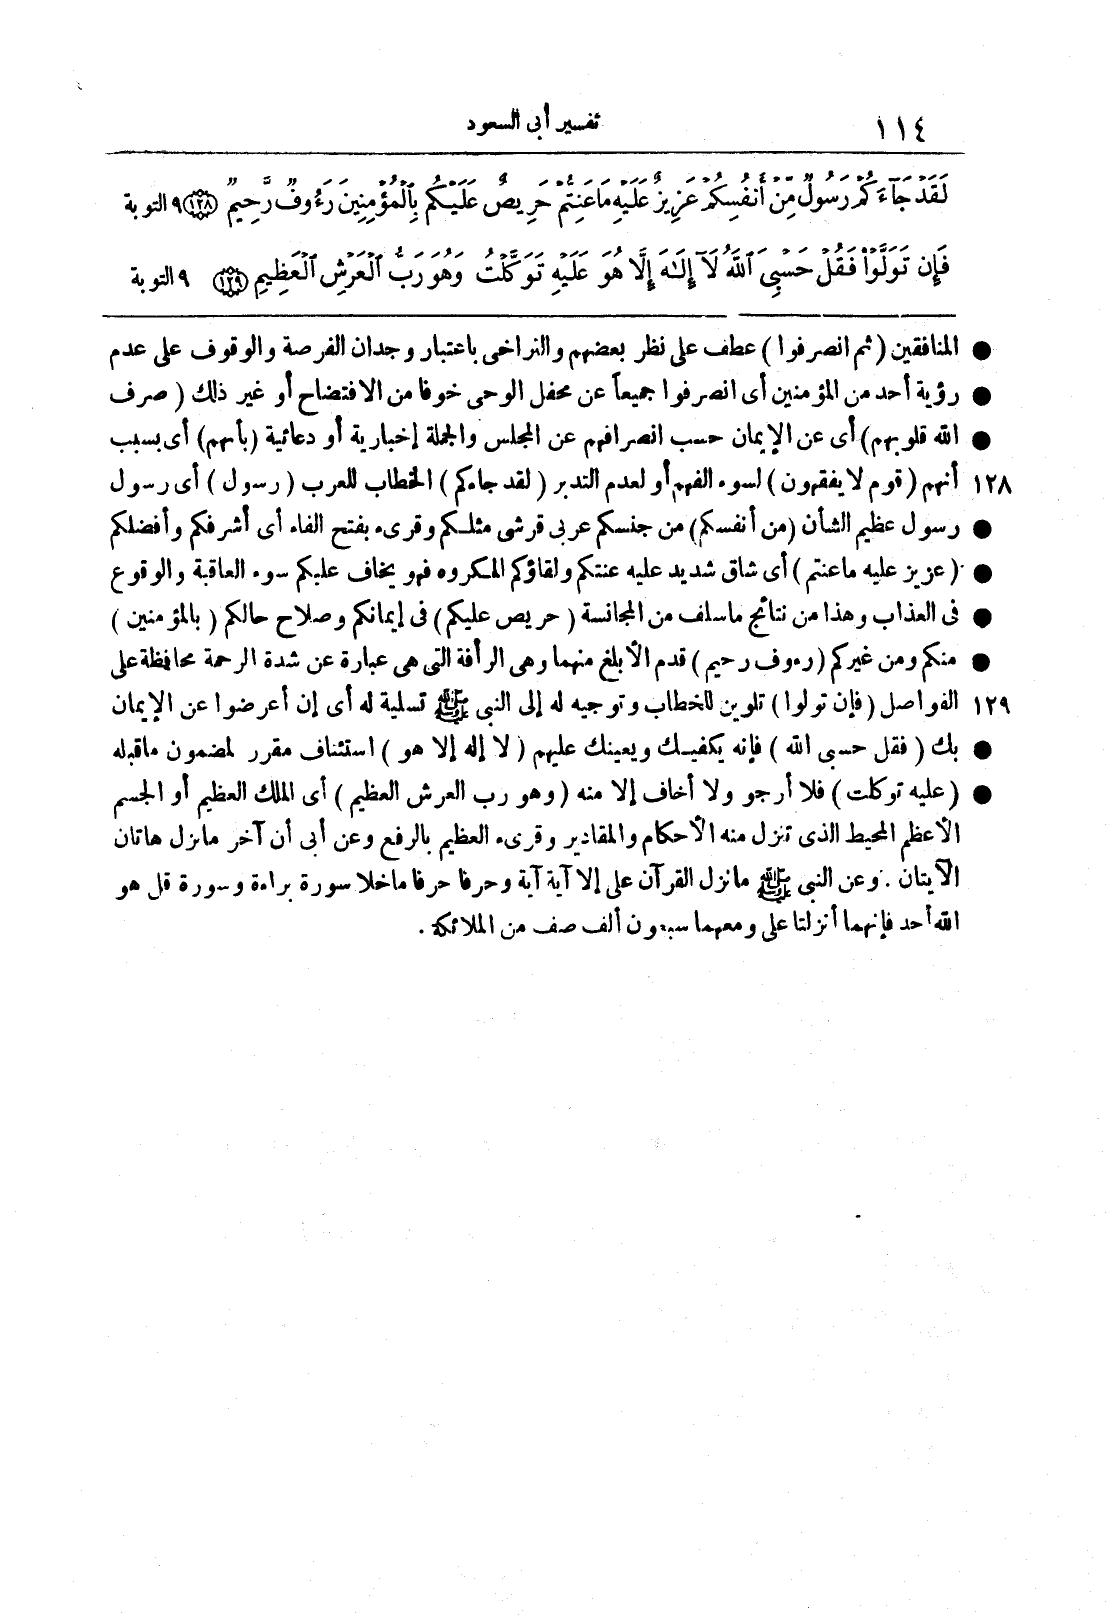 ١١٤ تفسير أبى السعود
لَقَدْ جَآءَكُمْ رَسُولٌ مِّنْ أَنفُسِكُمْ عَزِيزٌ عَلَيْهِ مَا عَنِتُّمْ حَرِيصٌ عَلَيْكُم بِالْمُؤْمِنِينَ رَءُوفٌ رَّحِيمٌ ١٢٨ ٩ التوبة
فَإِن تَوَلَّوْا فَقُلْ حَسْبِىَ ٱللَّهُ لَآ إِلَٰهَ إِلَّا هُوَ عَلَيْهِ تَوَكَّلْتُ وَهُوَ رَبُّ ٱلْعَرْشِ ٱلْعَظِيمِ ١٢٩ ٩ التوبة
● المنافقين ( ثم انصرفوا ) عطف على نظر بعضهم والتراخى باعتبار وجدان الفرصة والوقوف على عدم
● رؤية أحد من المؤمنين أى انصرفوا جميعاً عن محفل الوحى خوفا من الافتضاح أو غير ذلك ( صرف
● الله قلوبهم) أى عن الإيمان حسب انصرافهم عن المجلس والجملة إخبارية أو دعائية (بأنهم) أى بسبب
١٢٨ أنهم ( قوم لا يفقهون ) لسوء الفهم أو لعدم التدبر ( لقد جاءكم ) الخطاب للعرب ( رسول ) أى رسول
● رسول عظيم الشأن (من أنفسكم) من جنسكم عربى قرشى مثلكم وقرىء بفتح الفاء أى أشرفكم وأفضلكم
● ( عزيز عليه ماعنتم ) أى شاق شديد عليه عنتكم ولقاؤكم المكروه فهو يخاف عليكم سوء العاقبة والوقوع
● فى العذاب وهذا من نتائج ماسلف من المجانسة ( حريص عليكم ) فى إيمانكم وصلاح حالكم ( بالمؤمنين )
● منكم ومن غيركم ( رءوف رحيم ) قدم الأبلغ منهما وهى الرأفة التى هى عبارة عن شدة الرحمة محافظة على
١٢٩ الفواصل ( فإن تولوا ) تلوين للخطاب وتوجيه له إلى النبى ﷺ تسلية له أى إن أعرضوا عن الإيمان
● بك ( فقل حسبى الله ) فإنه يكفيك ويعينك عليهم ( لا إله إلا هو ) استئناف مقرر لمضمون ماقبله
● ( عليه توكلت ) فلا أرجو ولا أخاف إلا منه ( وهو رب العرش العظيم ) أى الملك العظيم أو الجسم
الأعظم المحيط الذى تنزل منه الأحكام والمقادير وقرىء العظيم بالرفع وعن أبى أن آخر مانزل هاتان
الآيتان . وعن النبى ﷺ مانزل القرآن على إلا آية آية وحرفا حرفا ماخلا سورة براءة وسورة قل هو
الله أحد فإنهما أنزلتا على ومعهما سبعون ألف صف من الملائكة .